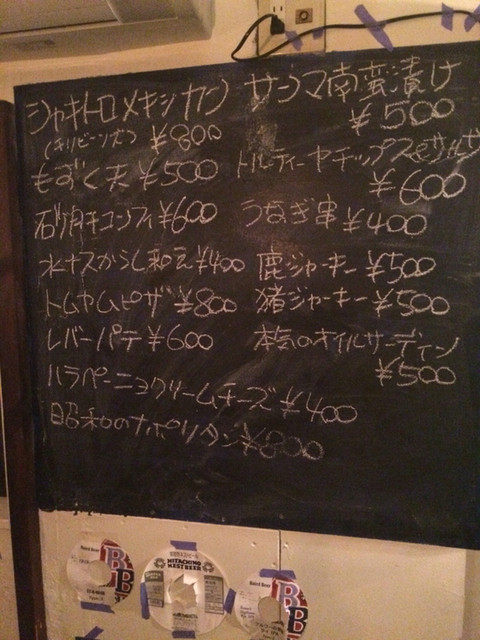 シャキトロメキシカン
(チリビーンズ) ¥800
もずく天 ¥500
砂肝コンフィ ¥600
水ナスからし和え ¥400
トムヤムピザ ¥800
レバーパテ ¥600
ハラペーニョクリームチーズ ¥400
昭和のナポリタン ¥800
サンマ南蛮漬け
¥500
トルティーヤチップス&サルサ
¥600
うなぎ串 ¥400
鹿ジャーキー ¥500
猪ジャーキー ¥500
本気のオイルサーディン
¥500
Baird Beer
HITACHINO
NEST BEER
Baird Beer